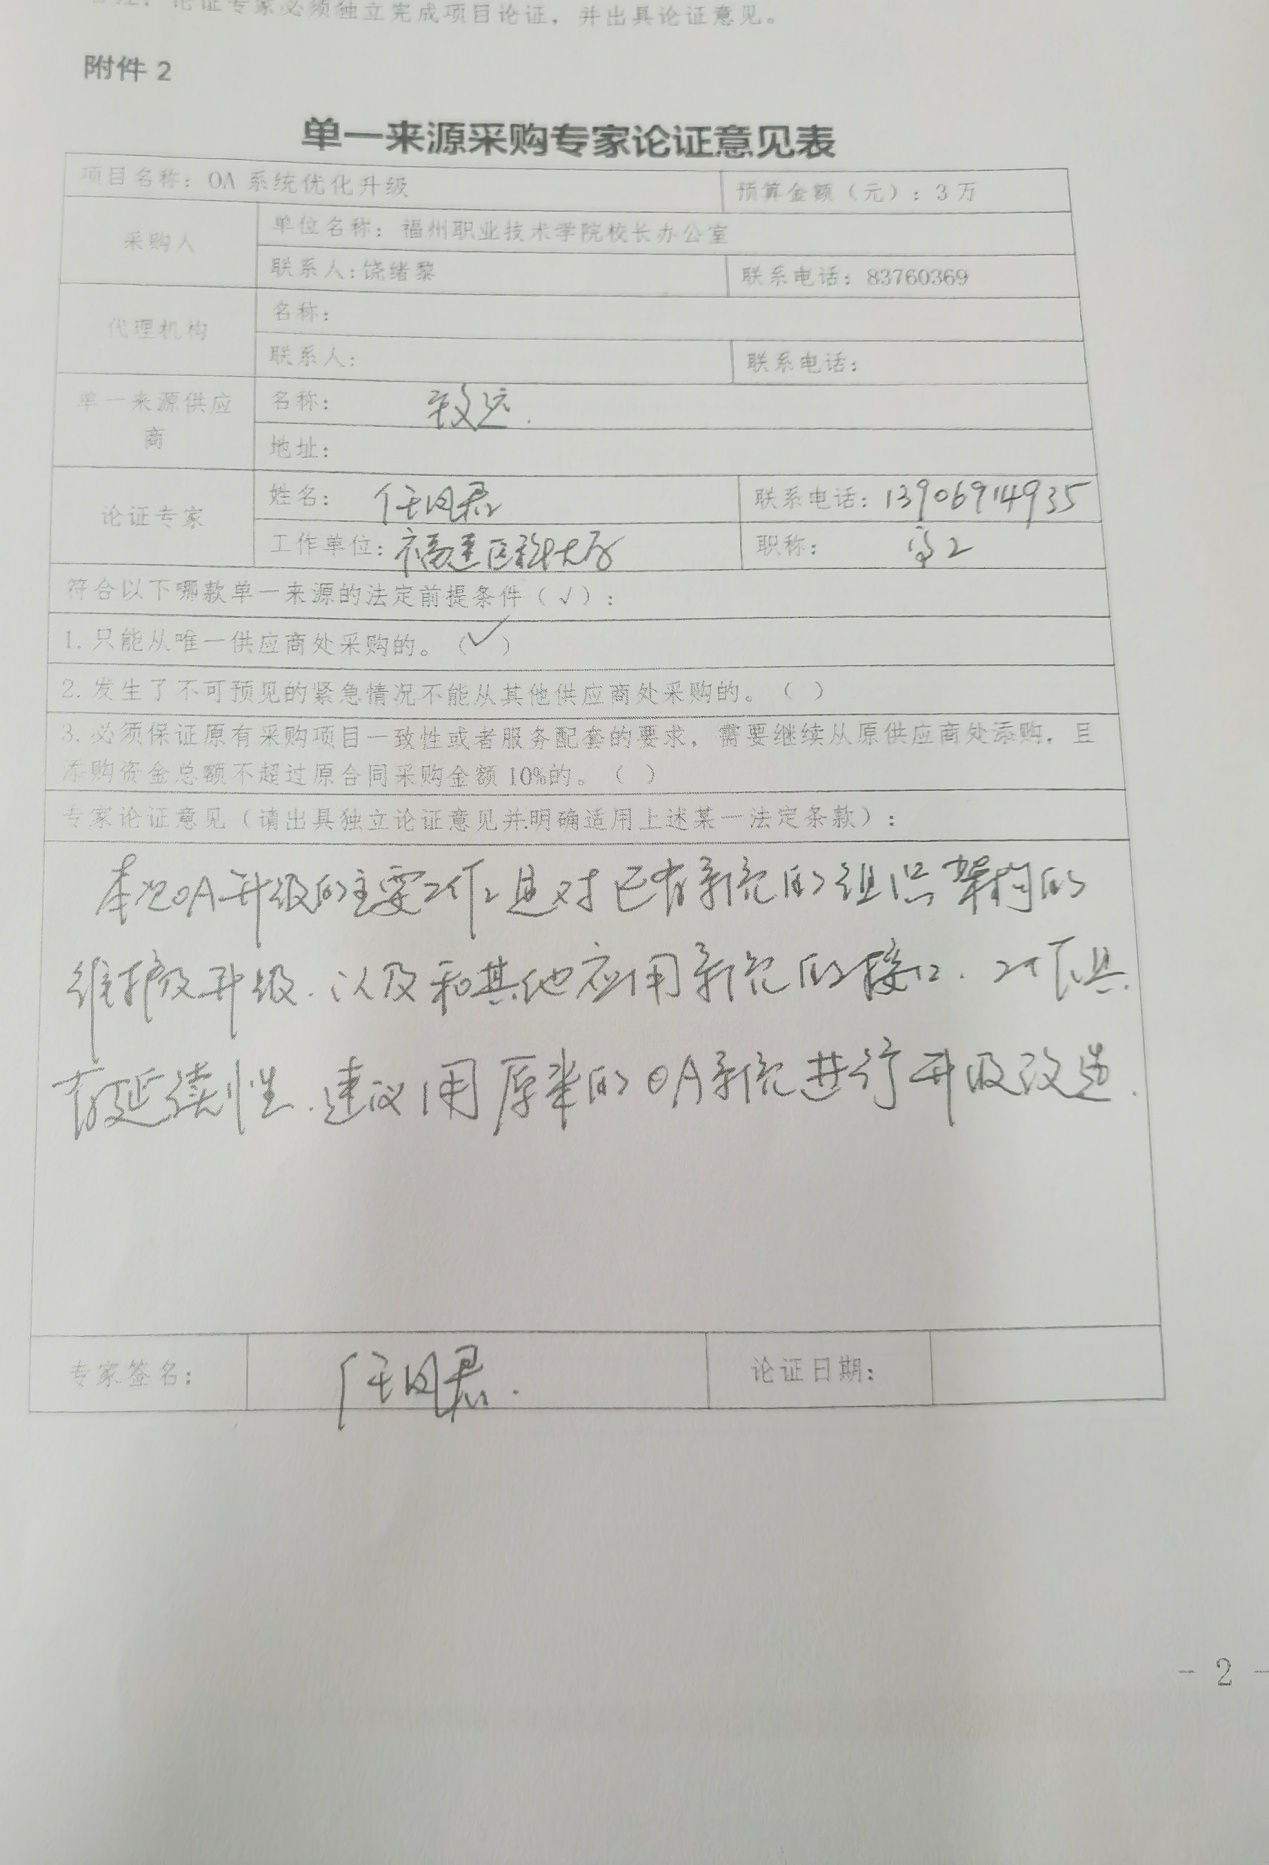 论证专家必须独立完成项目论证，并出具论证意见。
附件 2
单一来源采购专家论证意见表
项目名称：OA 系统优化升级 预算金额（元）：3 万
采购人 单位名称：福州职业技术学院校长办公室
联系人：饶绪黎 联系电话：83760369
代理机构 名称：
联系人： 联系电话：
单一来源供应商 名称： 致远.
地址：
论证专家 姓名： 任国君 联系电话：13906914935
工作单位：福建医科大学 职称： 高工
符合以下哪款单一来源的法定前提条件（√）：
1. 只能从唯一供应商处采购的。（✓）
2. 发生了不可预见的紧急情况不能从其他供应商处采购的。（ ）
3. 必须保证原有采购项目一致性或者服务配套的要求，需要继续从原供应商处添购，且
添购资金总额不超过原合同采购金额 10%的。（ ）
专家论证意见（请出具独立论证意见并明确适用上述某一法定条款）：
本次OA升级的主要工作是对已有系统的组织架构的
维护及升级.以及和其他应用系统的接口.工作具
有延续性.建议用原来的OA系统进行升级改造.
专家签名： 任国君. 论证日期：
- 2 -